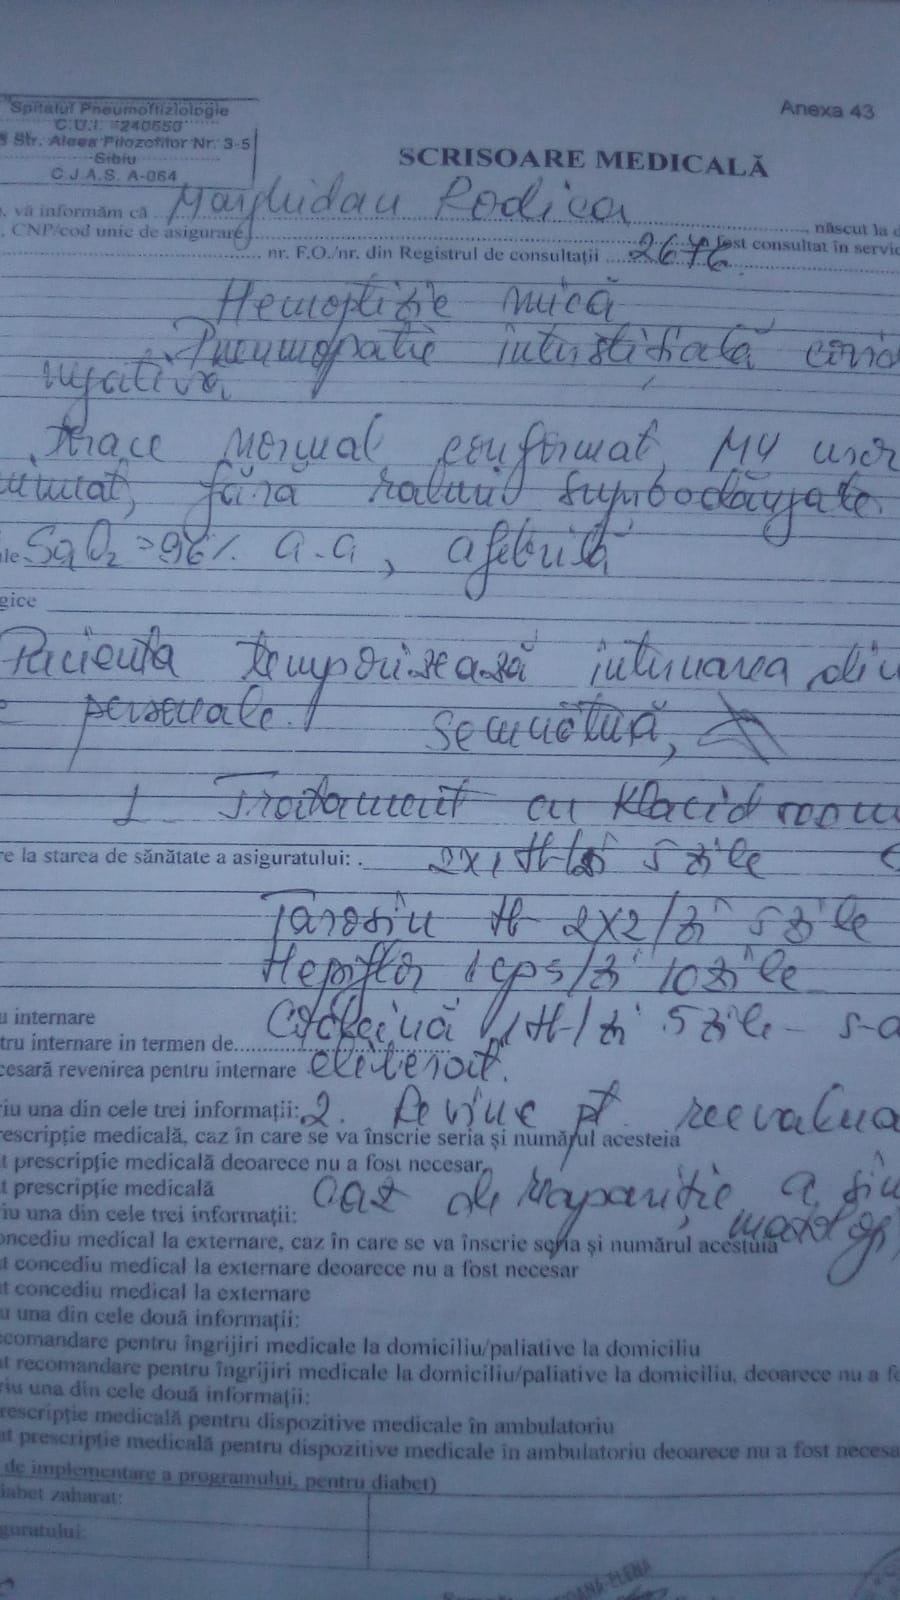 Spitalul Pneumoftiziologie
C.U.I. 4240650
Str. Aleea Filozofilor Nr. 3-5
Sibiu
C.J.A.S. A-064
Anexa 43
SCRISOARE MEDICALĂ
, vă informăm că Rodica născut la
, CNP/cod unic de asigurare
nr. F.O./nr. din Registrul de consultații 2676 fost consultat în servic
Hemoptizie mică
Pneumopatie interstițială covid
negativă
Torace normal conformat, MV
fără raluri supraadăugate
SaO2 = 96% a.a, afebrilă
gice
Pacienta temporizează internarea din
personale. Semnătură,
1 Tratament cu Klacid
re la starea de sănătate a asiguratului: . 2x1 tb/zi 5 zile
Tarosin tb 2x2/zi 5 zile
Hepiflor 1 cps/zi 10 zile
u internare Codeină 1 tb/zi 5 zile - s-a
tru internare in termen de
cesară revenirea pentru internare eliberat.
iu una din cele trei informații: 2. Revine pt reevalua
rescripție medicală, caz în care se va înscrie seria și numărul acesteia
t prescripție medicală deoarece nu a fost necesar
t prescripție medicală caz de reapariție a
iu una din cele trei informații:
oncediu medical la externare, caz în care se va înscrie seria și numărul acestuia
t concediu medical la externare deoarece nu a fost necesar
t concediu medical la externare
u una din cele două informații:
comandare pentru îngrijiri medicale la domiciliu/paliative la domiciliu
t recomandare pentru îngrijiri medicale la domiciliu/paliative la domiciliu, deoarece nu a fo
riu una din cele două informații:
rescripție medicală pentru dispozitive medicale în ambulatoriu
at prescripție medicală pentru dispozitive medicale în ambulatoriu deoarece nu a fost necesa
de implementare a programului, pentru diabet)
iabet zaharat:
guratului: